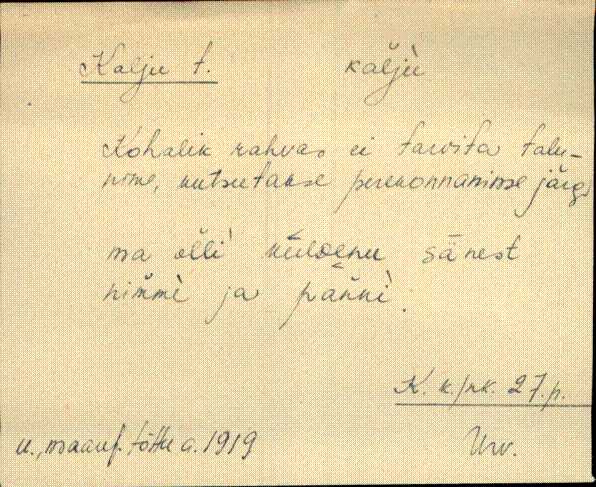 Kalju t. kal̆jù
Kohalik rahvas ei tarvita talu-
nime, kutsutakse perekonnanime järgi
ma ol̆lì kuldenu sānest
nim̆mè ja pań̆nì.
K. k./rk. 27. p.
u., maauf. tõttu a. 1919 Urv.